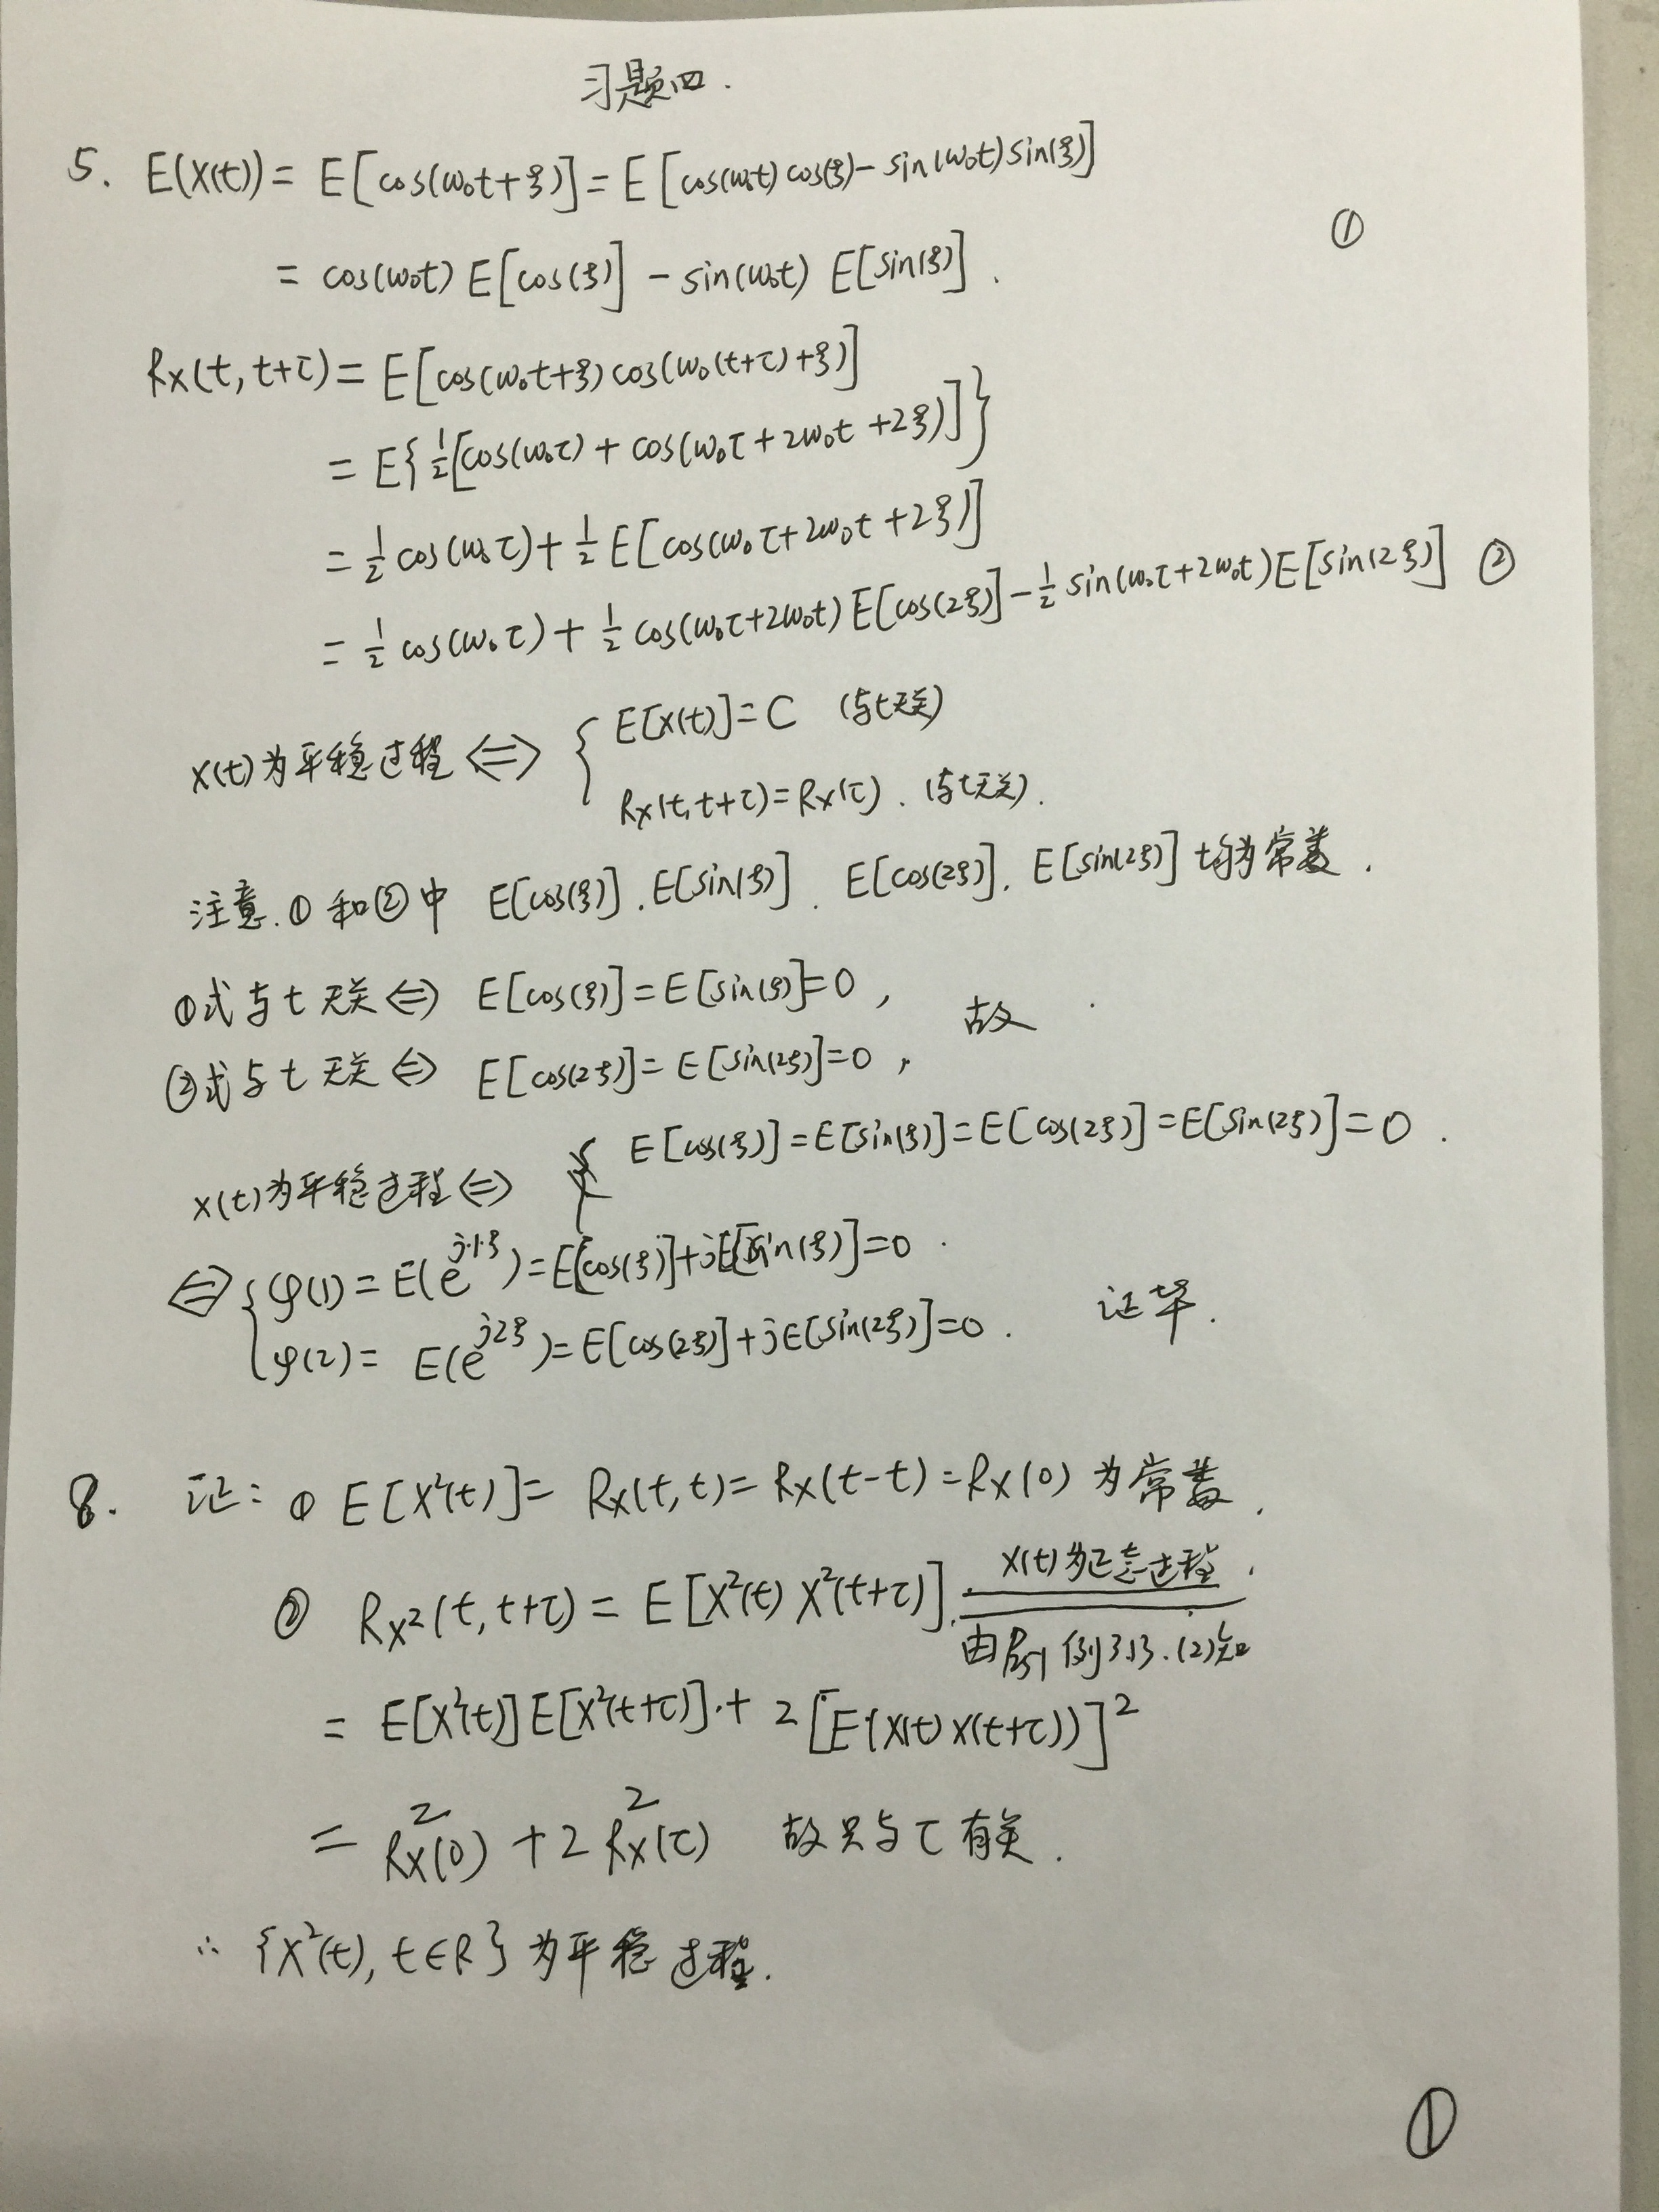 习题四.
5. E(X(t)) = E[cos(ω₀t+ξ)] = E[cos(ω₀t)cos(ξ) - sin(ω₀t)sin(ξ)]
= cos(ω₀t) E[cos(ξ)] - sin(ω₀t) E[sin(ξ)]. ①
Rx(t, t+τ) = E[cos(ω₀t+ξ)cos(ω₀(t+τ)+ξ)]
= E{½[cos(ω₀τ) + cos(ω₀τ+2ω₀t+2ξ)]}
= ½cos(ω₀τ) + ½E[cos(ω₀τ+2ω₀t+2ξ)]
= ½cos(ω₀τ) + ½cos(ω₀τ+2ω₀t)E[cos(2ξ)] - ½sin(ω₀τ+2ω₀t)E[sin(2ξ)] ②
X(t)为平稳过程 ⟺ { E[X(t)] = C (与t无关)
Rx(t, t+τ) = Rx(τ). (与t无关).
注意.①和②中 E[cos(ξ)]. E[sin(ξ)]. E[cos(2ξ)]. E[sin(2ξ)] 均为常数.
①式与t无关 ⟺ E[cos(ξ)] = E[sin(ξ)] = 0,
故
②式与t无关 ⟺ E[cos(2ξ)] = E[sin(2ξ)] = 0,
X(t)为平稳过程 ⟺ E[cos(ξ)] = E[sin(ξ)] = E[cos(2ξ)] = E[sin(2ξ)] = 0.
⟺ { φ(1) = E(e^{j·1·ξ}) = E[cos(ξ)] + jE[sin(ξ)] = 0.
φ(2) = E(e^{j2ξ}) = E[cos(2ξ)] + jE[sin(2ξ)] = 0. 证毕.
8. 证: ① E[X²(t)] = Rx(t, t) = Rx(t-t) = Rx(0) 为常数.
② R_{X²}(t, t+τ) = E[X²(t)X²(t+τ)]. X(t)为正态过程.
由P51 例3.13.(2)知
= E[X²(t)]E[X²(t+τ)] + 2[E(X(t)X(t+τ))]²
= Rx²(0) + 2Rx²(τ) 故只与τ有关.
∴ {X²(t), t∈R}为平稳过程.
①